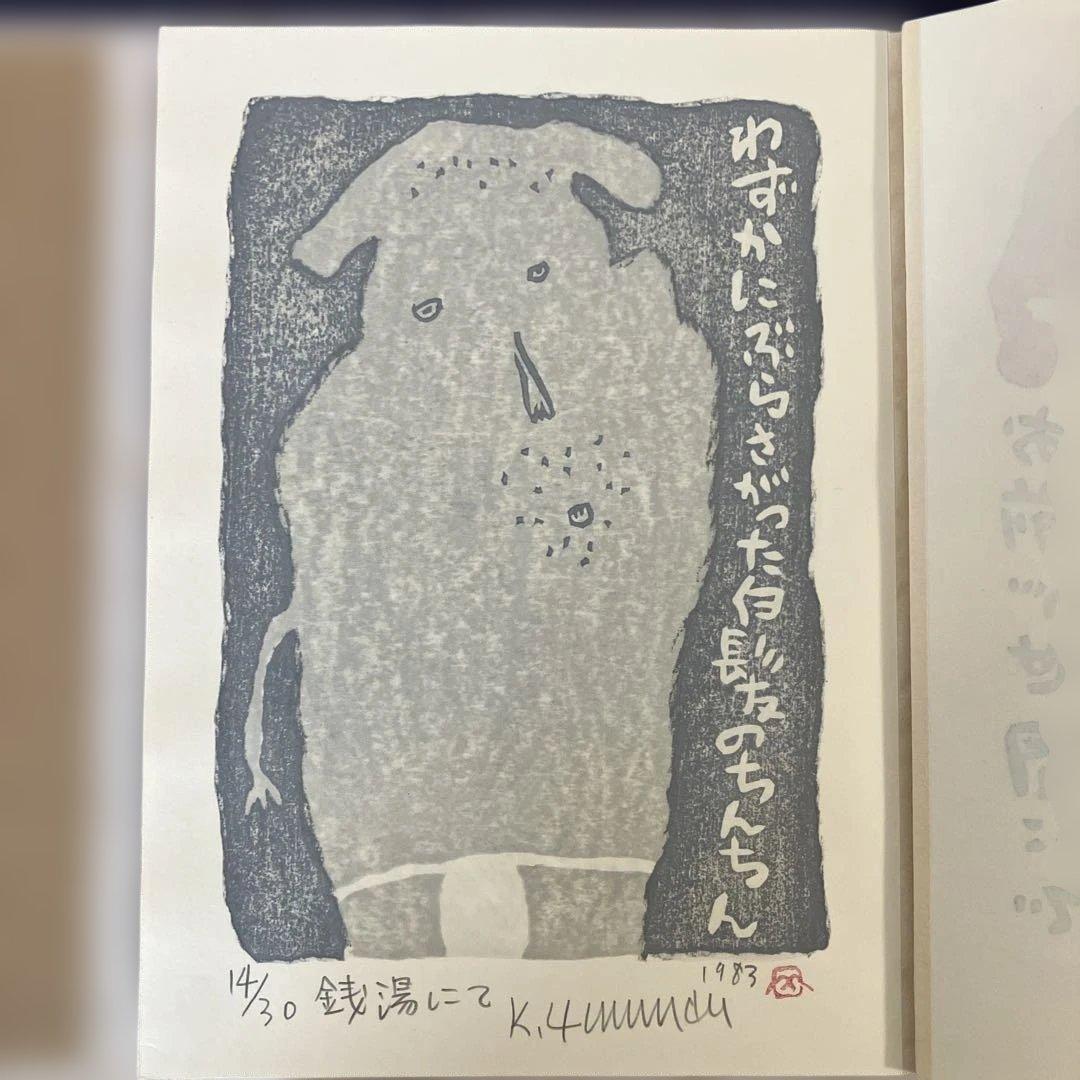 わずかにぶらさがった白髪のちんちん
14/30 銭湯にて
1983